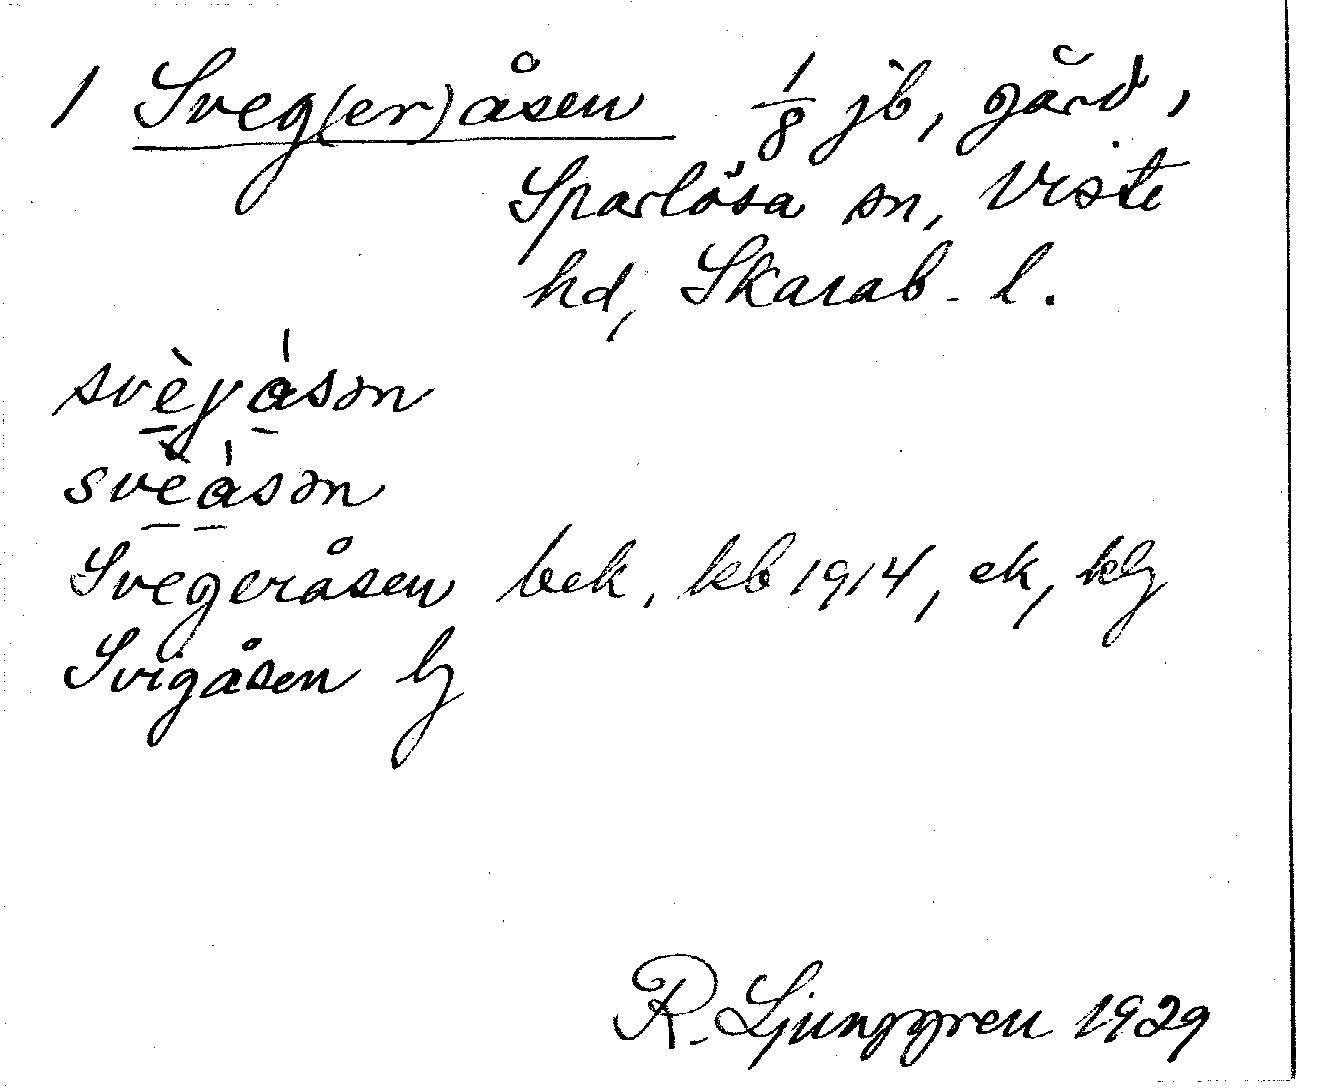 1 Sveg(er)åsen 1/8 jb, gård,
Sparlösa sn, Viste
hd, Skarab. l.
svèγåsən
svèåsən
Svegeråsen bek, kb 1914, ek, klj
Svigåsen lj
R. Ljunggren 1929